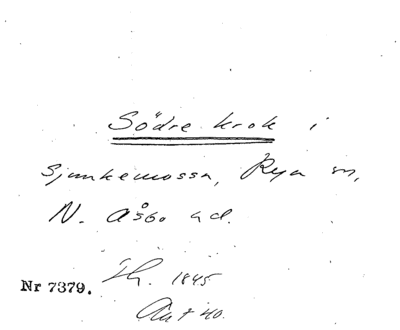 Södre krok i
Sjunkemossa, Rya sn,
N. Åsbo hd.
Nr 7379. Th. 1845
Ant 40.